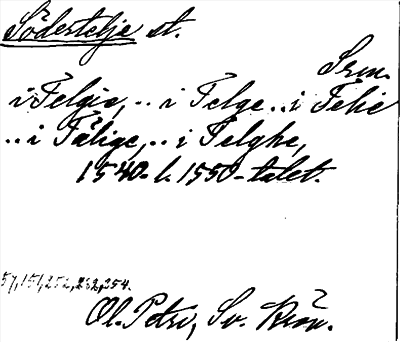 Södertelje st.
Srm.
i Telgie, .. i Telge .. i Telie
.. i Tälige, .. i Telghe,
1540- l. 1550-talet.
57, 151, 252, 282, 254.
Ol. Petri, Sv. Krön.